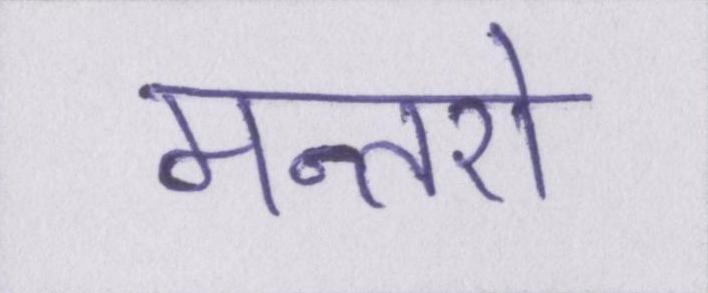 मन्तरो